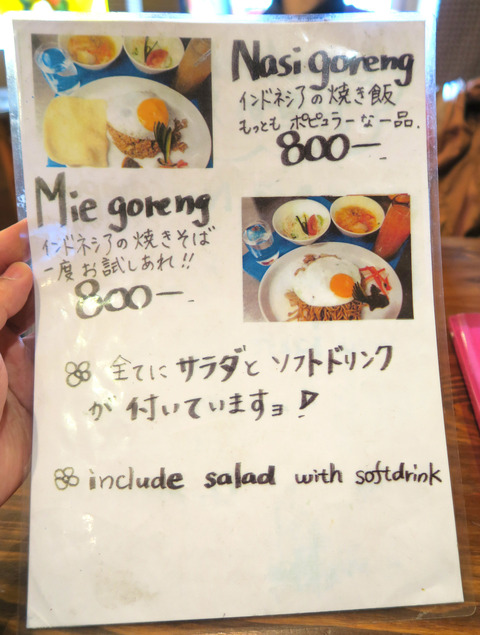 Nasi goreng
インドネシアの焼き飯
もっとも ポピュラーな一品.
800—
Mie goreng
インドネシアの焼きそば
一度お試しあれ!!
800—
全てにサラダとソフトドリンク
が付いていますョ!
include salad with softdrink